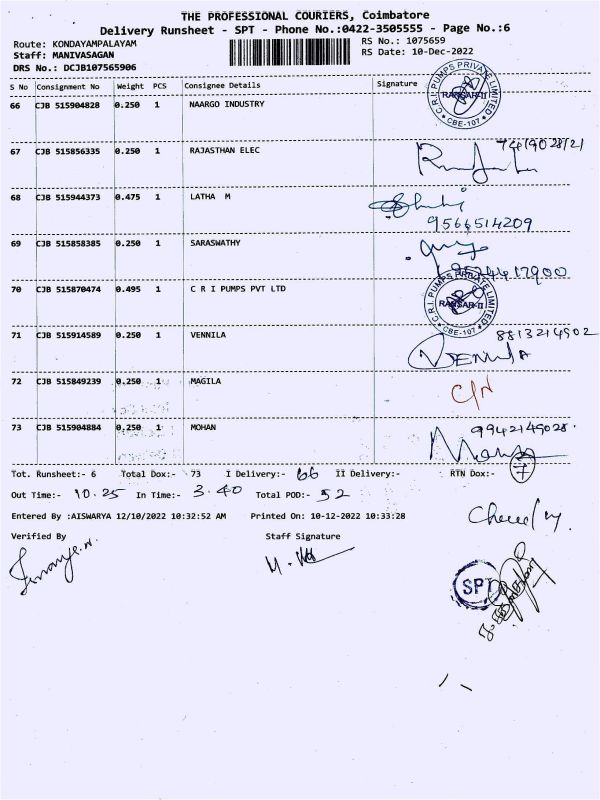 THE PROFESSIONAL COURIERS, Coimbatore
Delivery Runsheet - SPT - Phone No.:0422-3505555 - Page No.:6
Route: KONDAYAMPALAYAM
Staff: MANIVASAGAN
DRS No.: DCJB107565906
RS No.: 1075659
RS Date: 10-Dec-2022
S No Consignment No Weight PCS Consignee Details Signature
66 CJB 515904828 0.250 1 NAARGO INDUSTRY
C.R.I. PUMPS PRIVATE LIMITED
RANSAR-II
CBE-107
67 CJB 515856335 0.250 1 RAJASTHAN ELEC
68 CJB 515944373 0.475 1 LATHA M
9566514209
69 CJB 515858385 0.250 1 SARASWATHY
70 CJB 515870474 0.495 1 C R I PUMPS PVT LTD
C.R.I. PUMPS PRIVATE LIMITED
RANSAR-II
CBE-107
71 CJB 515914589 0.250 1 VENNILA 8813214902
VENNILA
72 CJB 515849239 0.250 1 MAGILA C/N
73 CJB 515904884 0.250 1 MOHAN 9942149028
Tot. Runsheet:- 6 Total Dox:- 73 I Delivery:- 66 II Delivery:- RTN Dox:- 7
Out Time:- 10.25 In Time:- 3.40 Total POD:- 52
Entered By :AISWARYA 12/10/2022 10:32:52 AM Printed On: 10-12-2022 10:33:28
Verified By Staff Signature
SPT